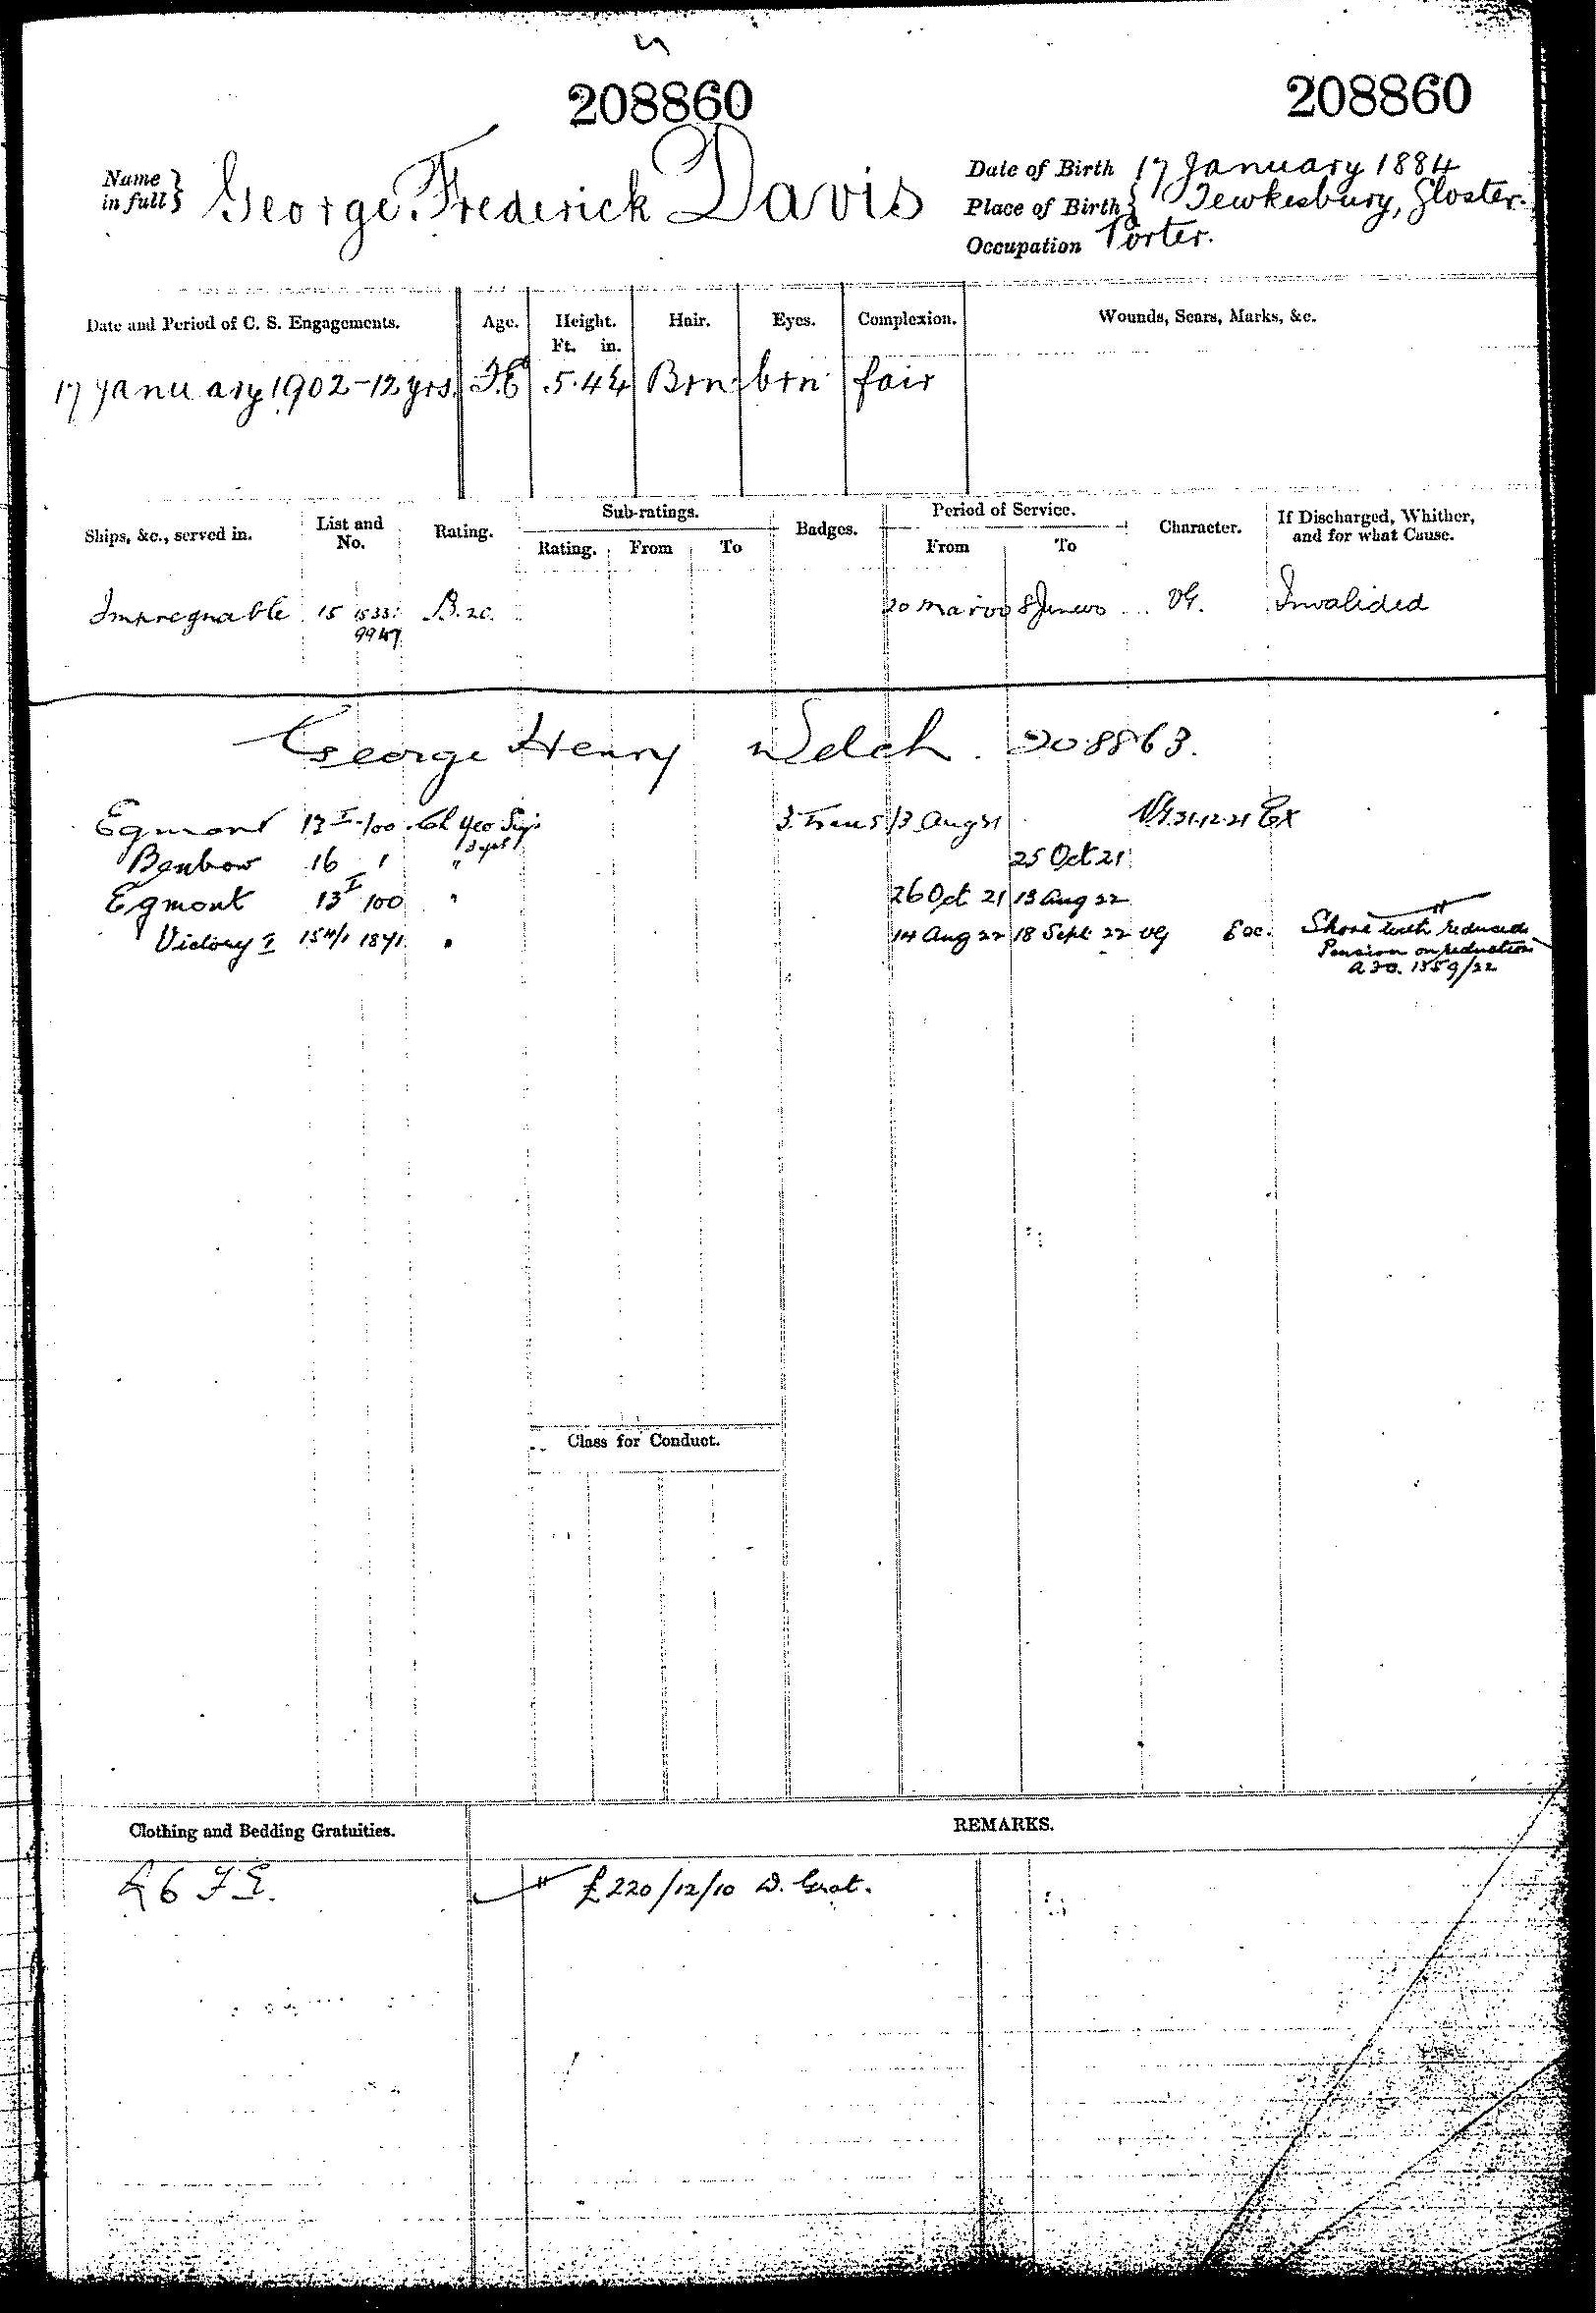 208860 208860
Name in full } George Frederick Davis
Date of Birth 17 January 1884
Place of Birth } Tewkesbury, Gloster.
Occupation Porter.
Date and Period of C. S. Engagements. Age. Height. Ft. in. Hair. Eyes. Complexion. Wounds, Scars, Marks, &c.
17 January 1902 - 12 yrs. 5.4 Brn brn fair
Ships, &c., served in. List and No. Rating. Sub-ratings. Rating. From To Badges. Period of Service. From To Character. If Discharged, Whither, and for what Cause.
Impregnable 15 B.2c. 20 Mar 00 8 June 00 VG. Invalided
9947
George Henry Welch. 208863.
Egmont 13 I 100 Ch Yeo Sig. 13 Aug 21 VG. 31.12.21 Ex
Benbow 16 1 " 25 Oct 21
Egmont 13 I 100 " 26 Oct 21 13 Aug 22
Victory I 15 1841 " 14 Aug 22 18 Sept 22 VG Shore with reduced
Pension on reduction
1559/22
Class for Conduct.
Clothing and Bedding Gratuities. REMARKS.
£220/12/10 D. Grat.